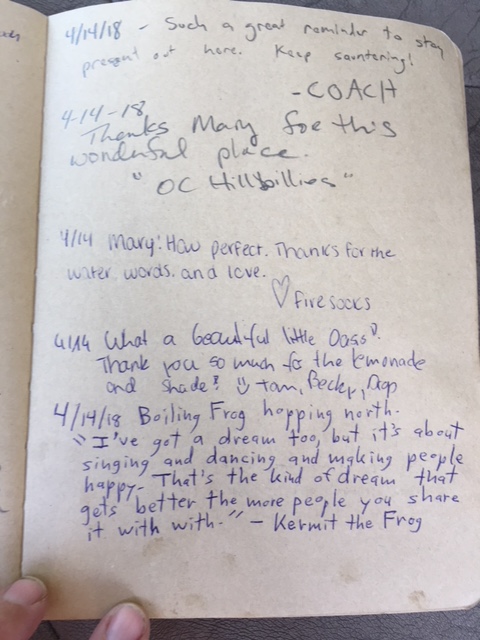 4/14/18 - Such a great reminder to stay
present out here. Keep sauntering!
-COACH
4-14-18
Thanks Mary for this
wonderful place.
"OC Hillbillies"
4/14 Mary: How perfect. Thanks for the
water, words, and love.
♡ firesocks
4/14 What a beautiful little Oasis!
Thank you so much for the lemonade
and shade! Tam, Becky,
4/14/18 Boiling Frog hopping north.
"I've got a dream too, but it's about
singing and dancing and making people
happy. That's the kind of dream that
gets better the more people you share
it with with." - Kermit the Frog